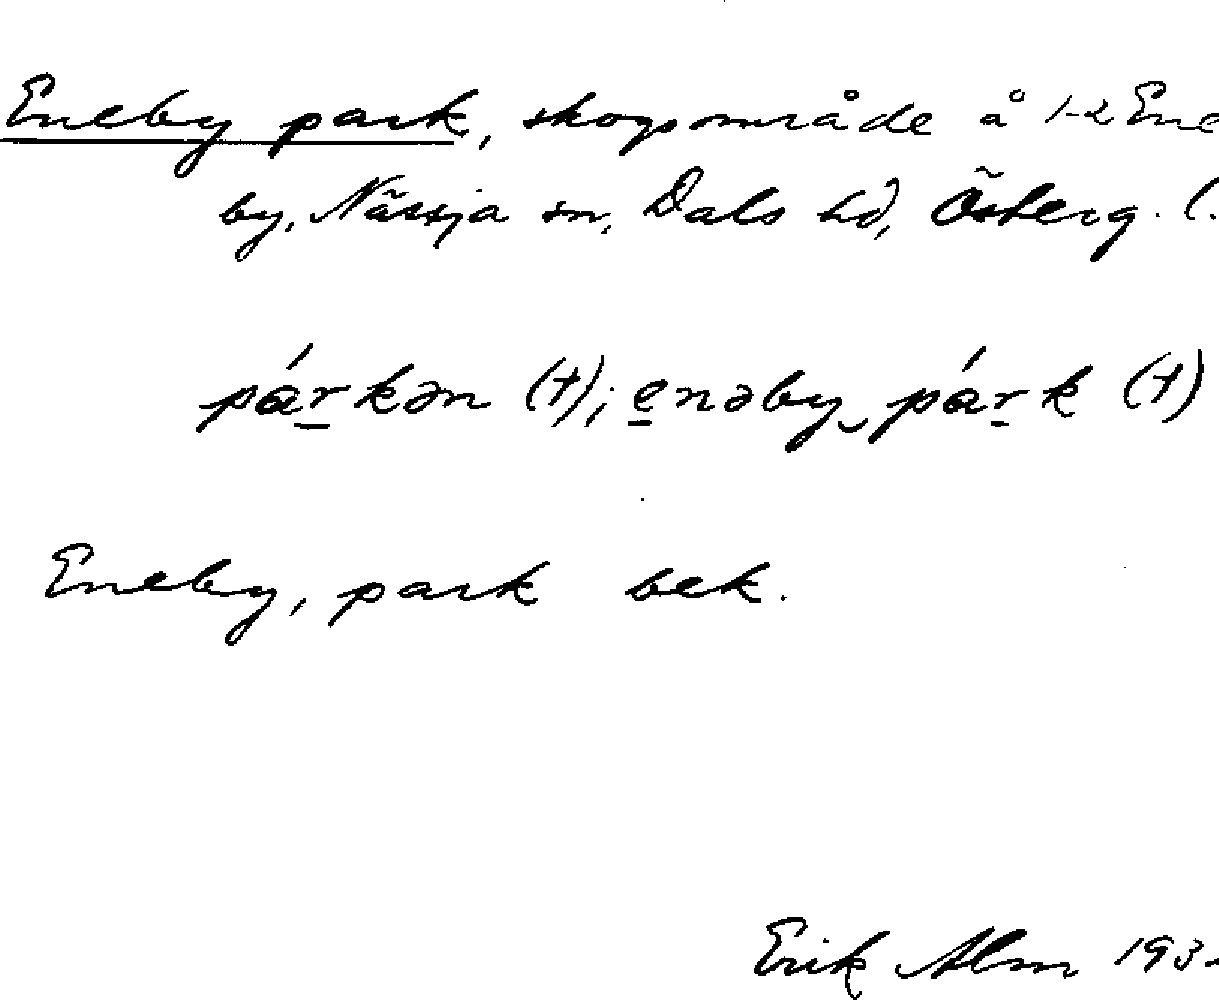 Eneby park, skogsområde å 1-2 Ene
by, Nässja sn, Dals hd, Österg. l.
párkən (+); enəby‿párk (+)
Eneby, park bek.
Erik Alm 193